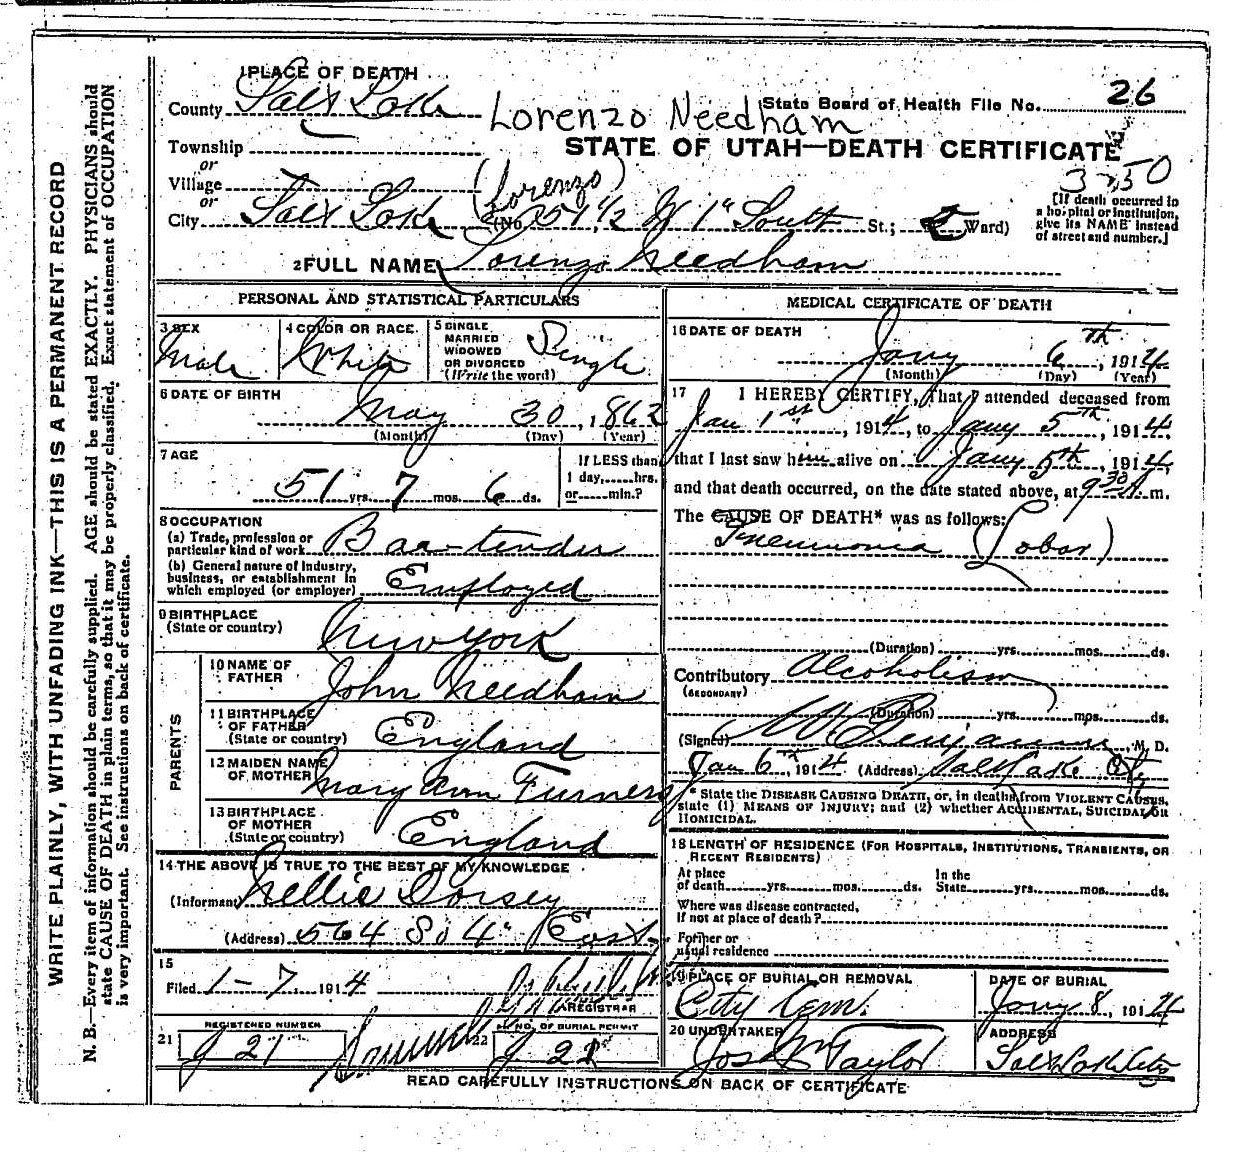 WRITE PLAINLY, WITH UNFADING INK—THIS IS A PERMANENT RECORD
N. B.—Every item of information should be carefully supplied. AGE should be stated EXACTLY. PHYSICIANS should
state CAUSE OF DEATH in plain terms, so that it may be properly classified. Exact statement of OCCUPATION
is very important. See instructions on back of certificate.
1 PLACE OF DEATH
County Salt Lake
Lorenzo Needham
State Board of Health File No. 26
Township
STATE OF UTAH—DEATH CERTIFICATE
or
Village
(Lorenzo)
3750
or
City Salt Lake (No. 251 1/2 W 1st South St.; Ward)
[If death occurred in
a hospital or institution,
give its NAME instead
of street and number.]
2 FULL NAME Lorenzo Needham
PERSONAL AND STATISTICAL PARTICULARS
3 SEX
Male
4 COLOR OR RACE
White
5 SINGLE
MARRIED
WIDOWED
OR DIVORCED
(Write the word)
Single
6 DATE OF BIRTH
May 30, 1862
(Month) (Day) (Year)
7 AGE
51 yrs. 7 mos. 6 ds.
If LESS than
1 day, hrs.
or min.?
8 OCCUPATION
(a) Trade, profession or
particular kind of work Bar-tender
(b) General nature of industry,
business, or establishment in
which employed (or employer) Employed
9 BIRTHPLACE
(State or country) New York
PARENTS
10 NAME OF
FATHER John Needham
11 BIRTHPLACE
OF FATHER
(State or country) England
12 MAIDEN NAME
OF MOTHER Mary Ann
13 BIRTHPLACE
OF MOTHER
(State or country) England
14 THE ABOVE IS TRUE TO THE BEST OF MY KNOWLEDGE
(Informant) Nellie Dorsey
(Address) 564 So 4" East
15
Filed 1-7 1914
REGISTRAR
21 REGISTERED NUMBER
J 21
22 NO. OF BURIAL PERMIT
J 21
MEDICAL CERTIFICATE OF DEATH
16 DATE OF DEATH
Jany 6th, 1914
(Month) (Day) (Year)
17 I HEREBY CERTIFY, That I attended deceased from
Jan 1st, 1914, to Jany 5th, 1914,
that I last saw him alive on Jany 5th, 1914,
and that death occurred, on the date stated above, at 9 30 A. m.
The CAUSE OF DEATH* was as follows:
Pneumonia (Lobar)
(Duration) yrs. mos. ds.
Contributory Alcoholism
(SECONDARY)
(Duration) yrs. mos. ds.
(Signed) , M. D.
Jan 6th, 1914 (Address) Salt Lake City
* State the DISEASE CAUSING DEATH, or, in deaths from VIOLENT CAUSES,
state (1) MEANS OF INJURY; and (2) whether ACCIDENTAL, SUICIDAL, OR
HOMICIDAL.
18 LENGTH OF RESIDENCE (FOR HOSPITALS, INSTITUTIONS, TRANSIENTS, OR
RECENT RESIDENTS)
At place
of death yrs. mos. ds.
In the
State yrs. mos. ds.
Where was disease contracted,
if not at place of death?
Former or
usual residence
19 PLACE OF BURIAL OR REMOVAL
City Cem.
DATE OF BURIAL
Jany 8, 1914
20 UNDERTAKER
Jos Wm Taylor
ADDRESS
Salt Lake City
READ CAREFULLY INSTRUCTIONS ON BACK OF CERTIFICATE